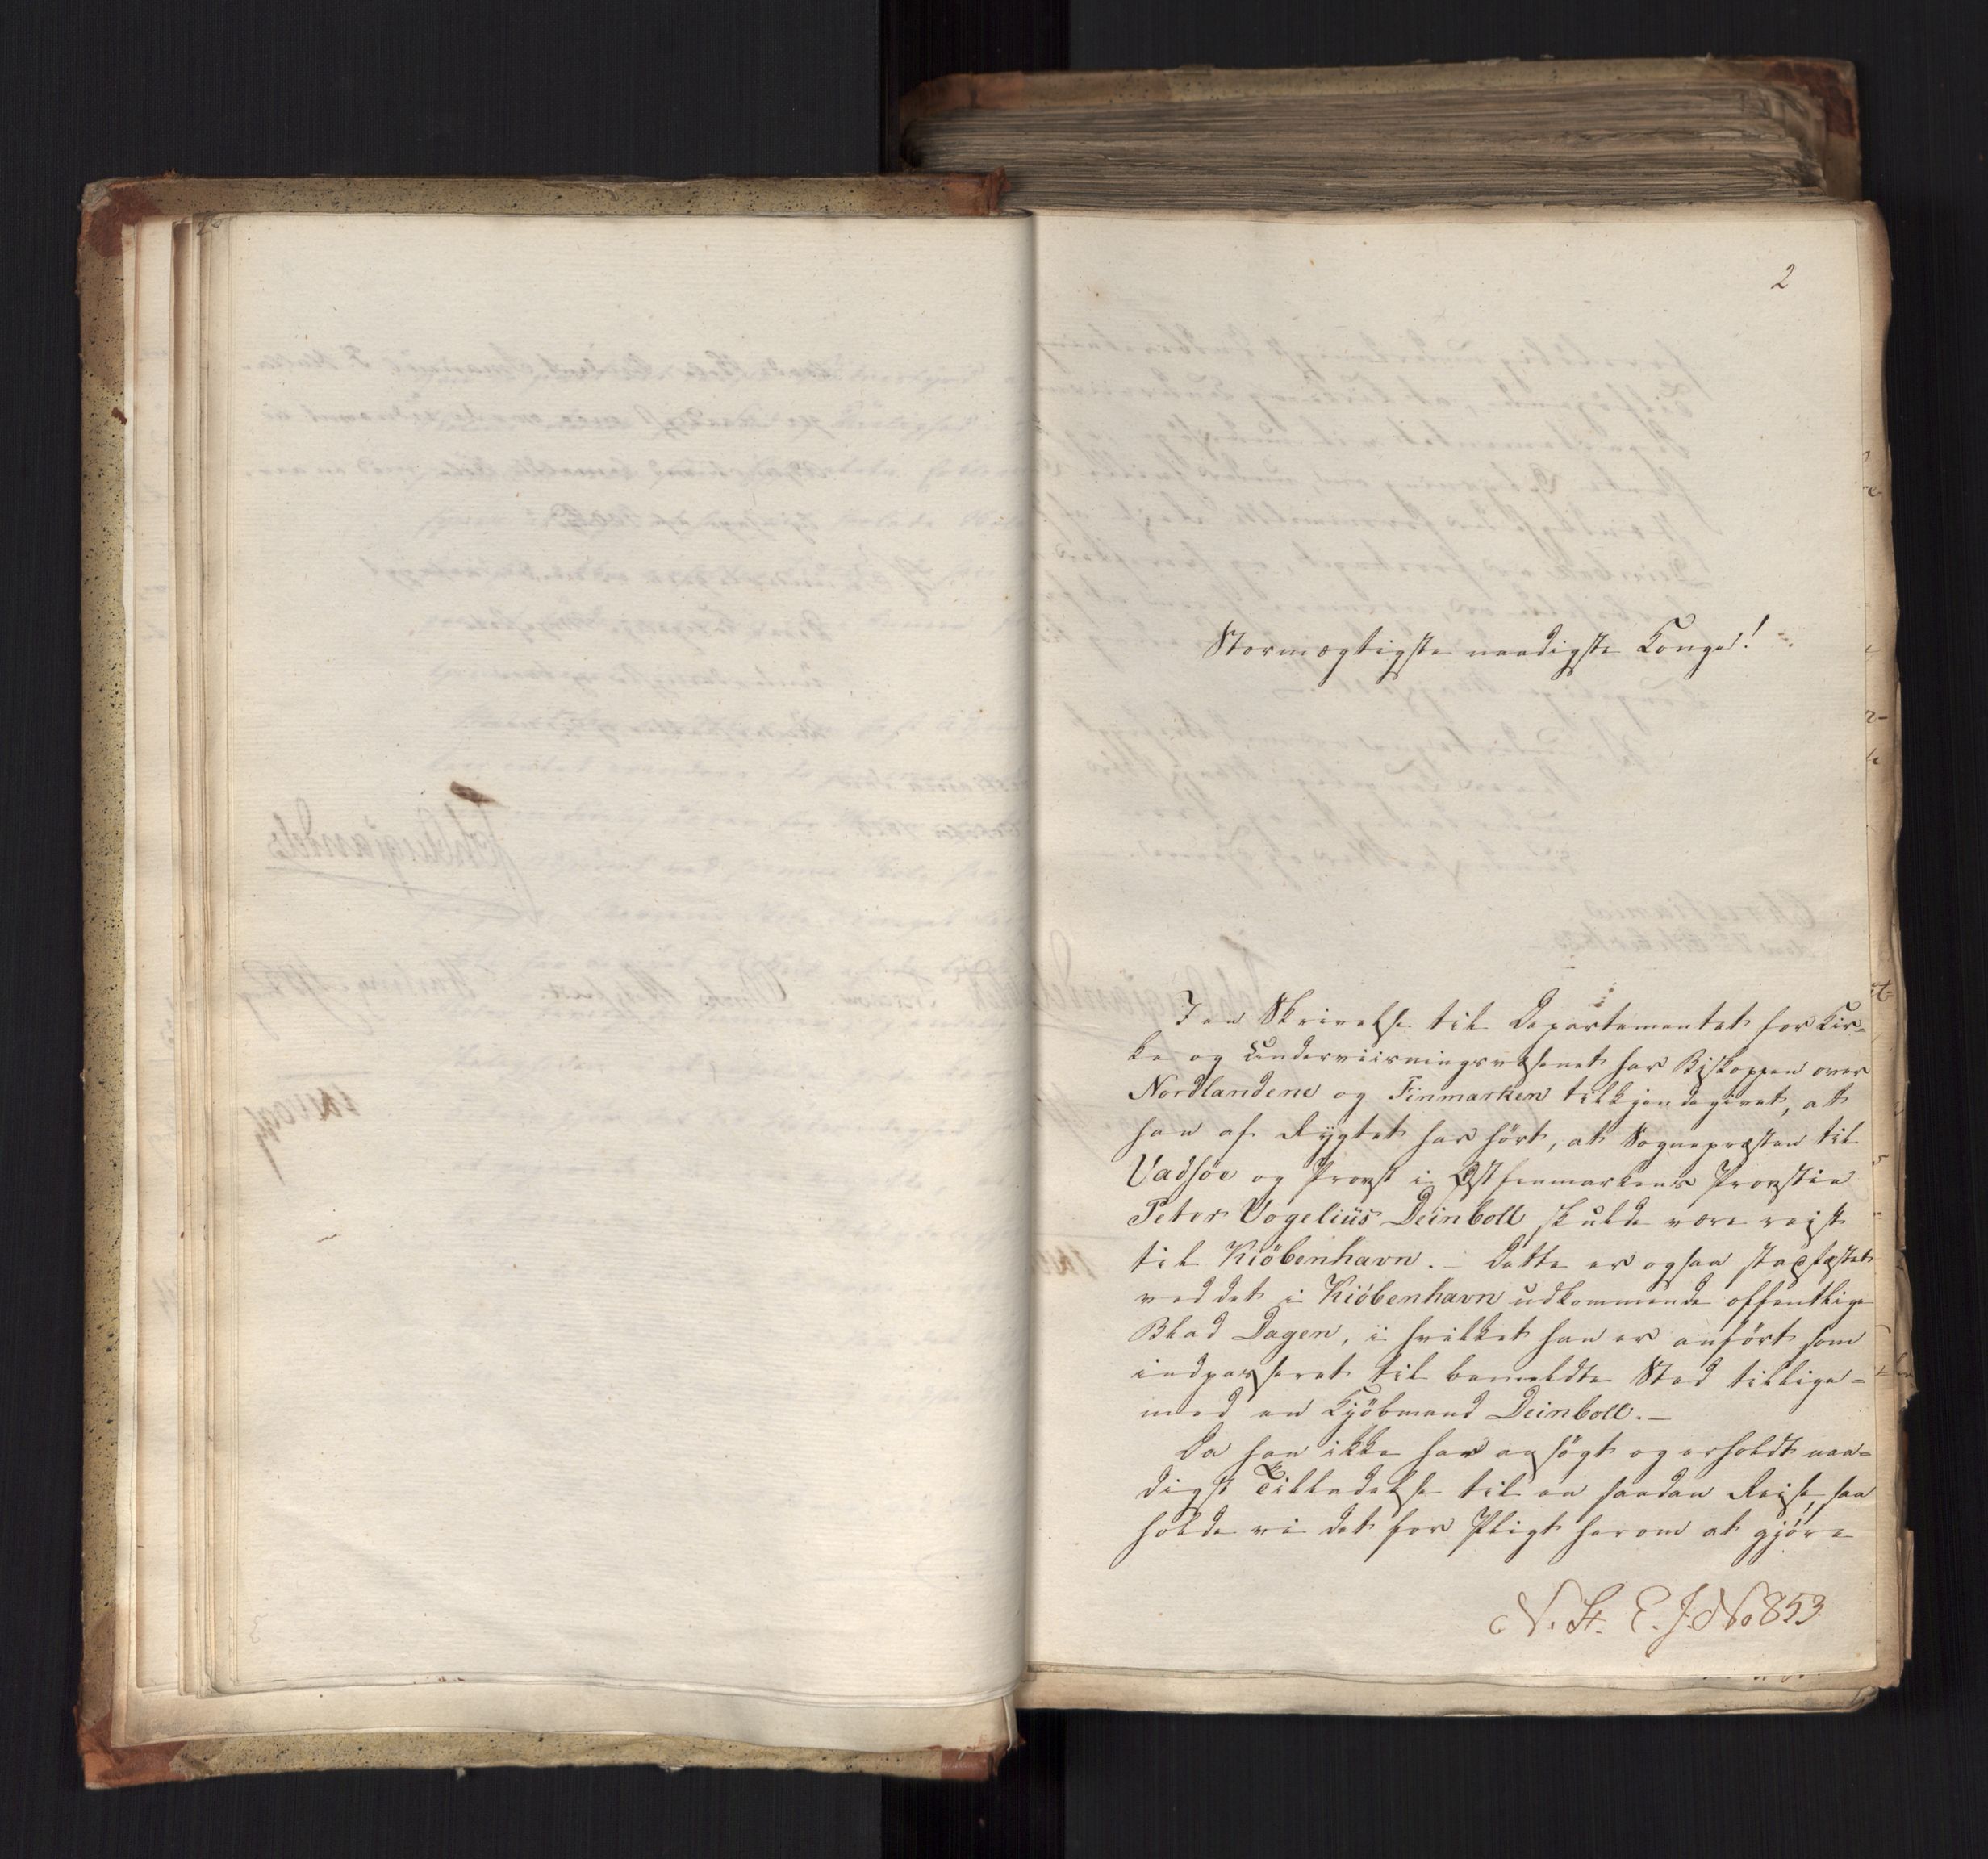 2
Stormægtigste naadigste Konge!
I en Skrivelse til Departementet for Kir-
ke og Underviisningsvæsenet har Biskoppen over
Nordlandene og Finmarken tilkjendegivet, at
han af Rygtet har hört, at Sognepræsten til
Vadsöe og Provst i Østfinmarkens Provstie
Peter Vogelius Deinboll skulde være reist
til Kiöbenhavn. - Dette er ogsaa stadfæstet
ved det i Kiöbenhavn udkommende offentlige
Blad Dagen, i hvilket han er anfört som
indpasseret til bemeldte Stad tillige-
med en Kjöbmand Deinboll. -
Da han ikke har ansögt og erholdt naa-
digst Tilladelse til en saadan Reise, saa
holde vi det for Pligt herom at gjöre
N. St. E. J. No 853